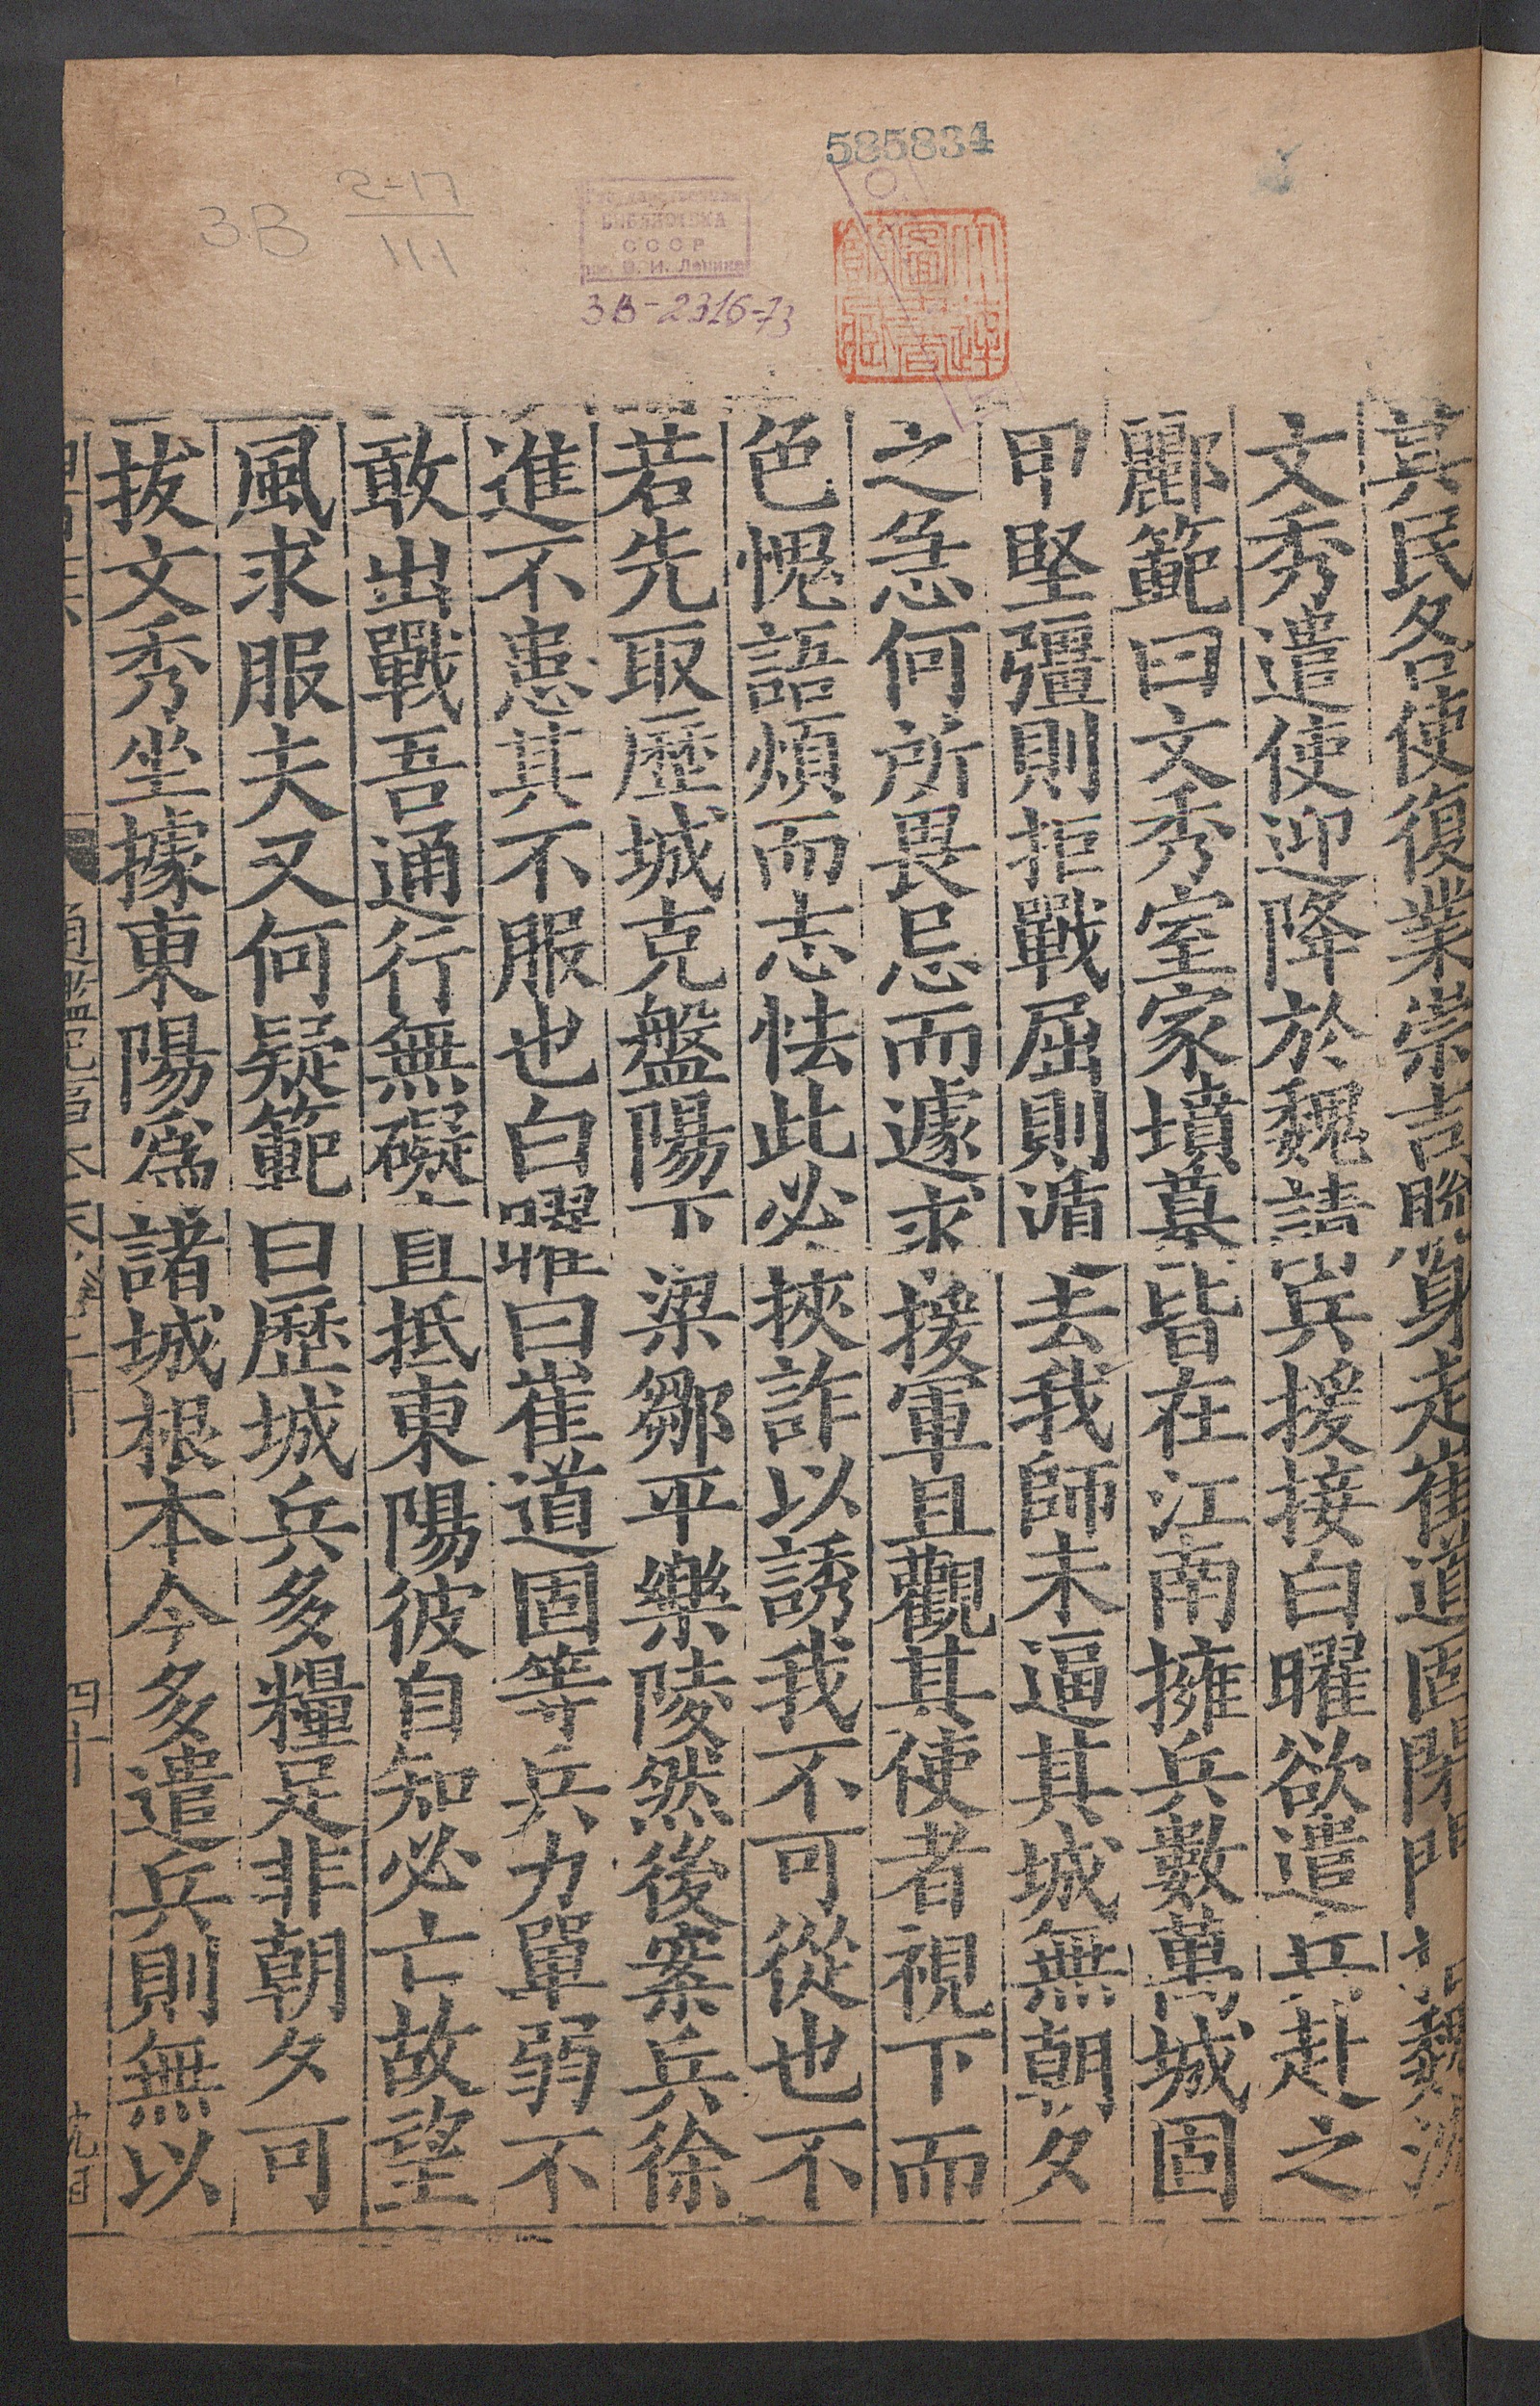 585834
2-17
3B
111
БИБЛИОТЕКА
СССР
им. В. И. Ленина
3В-2316-73
其民各使復業崇吉脫身走崔道固閉門拒魏沈
文秀遣使迎降於魏請兵援接白曜欲遣兵赴之
酈範曰文秀室家墳墓皆在江南擁兵數萬城固
甲堅彊則拒戰屈則遁去我師未逼其城無朝夕
之急何所畏忌而遽求援軍且觀其使者視下而
色愧語煩而志怯此必挾詐以誘我不可從也不
若先取歷城克盤陽下梁鄒平樂陵然後案兵徐
進不患其不服也白曜曰崔道固等兵力單弱不
敢出戰吾通行無礙直抵東陽彼自知必亡故望
風求服夫又何疑範曰歷城兵多糧足非朝夕可
拔文秀坐據東陽爲諸城根本今多遣兵則無以
四十